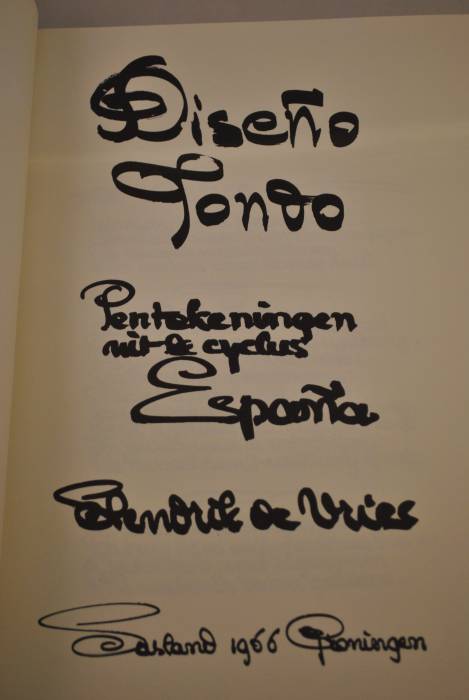 Diseño
Jondo
Pentekeningen
uit de cyclus
España
Hendrik de Vries
Sasland 1966 Groningen